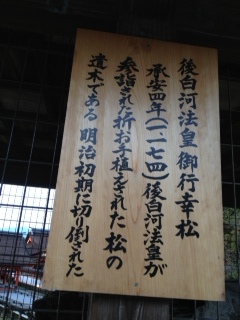 後白河法皇御行幸松
承安四年(一一七四)後白河法皇が
参詣された折お手植えされた松の
遺木である 明治初期に切り倒された